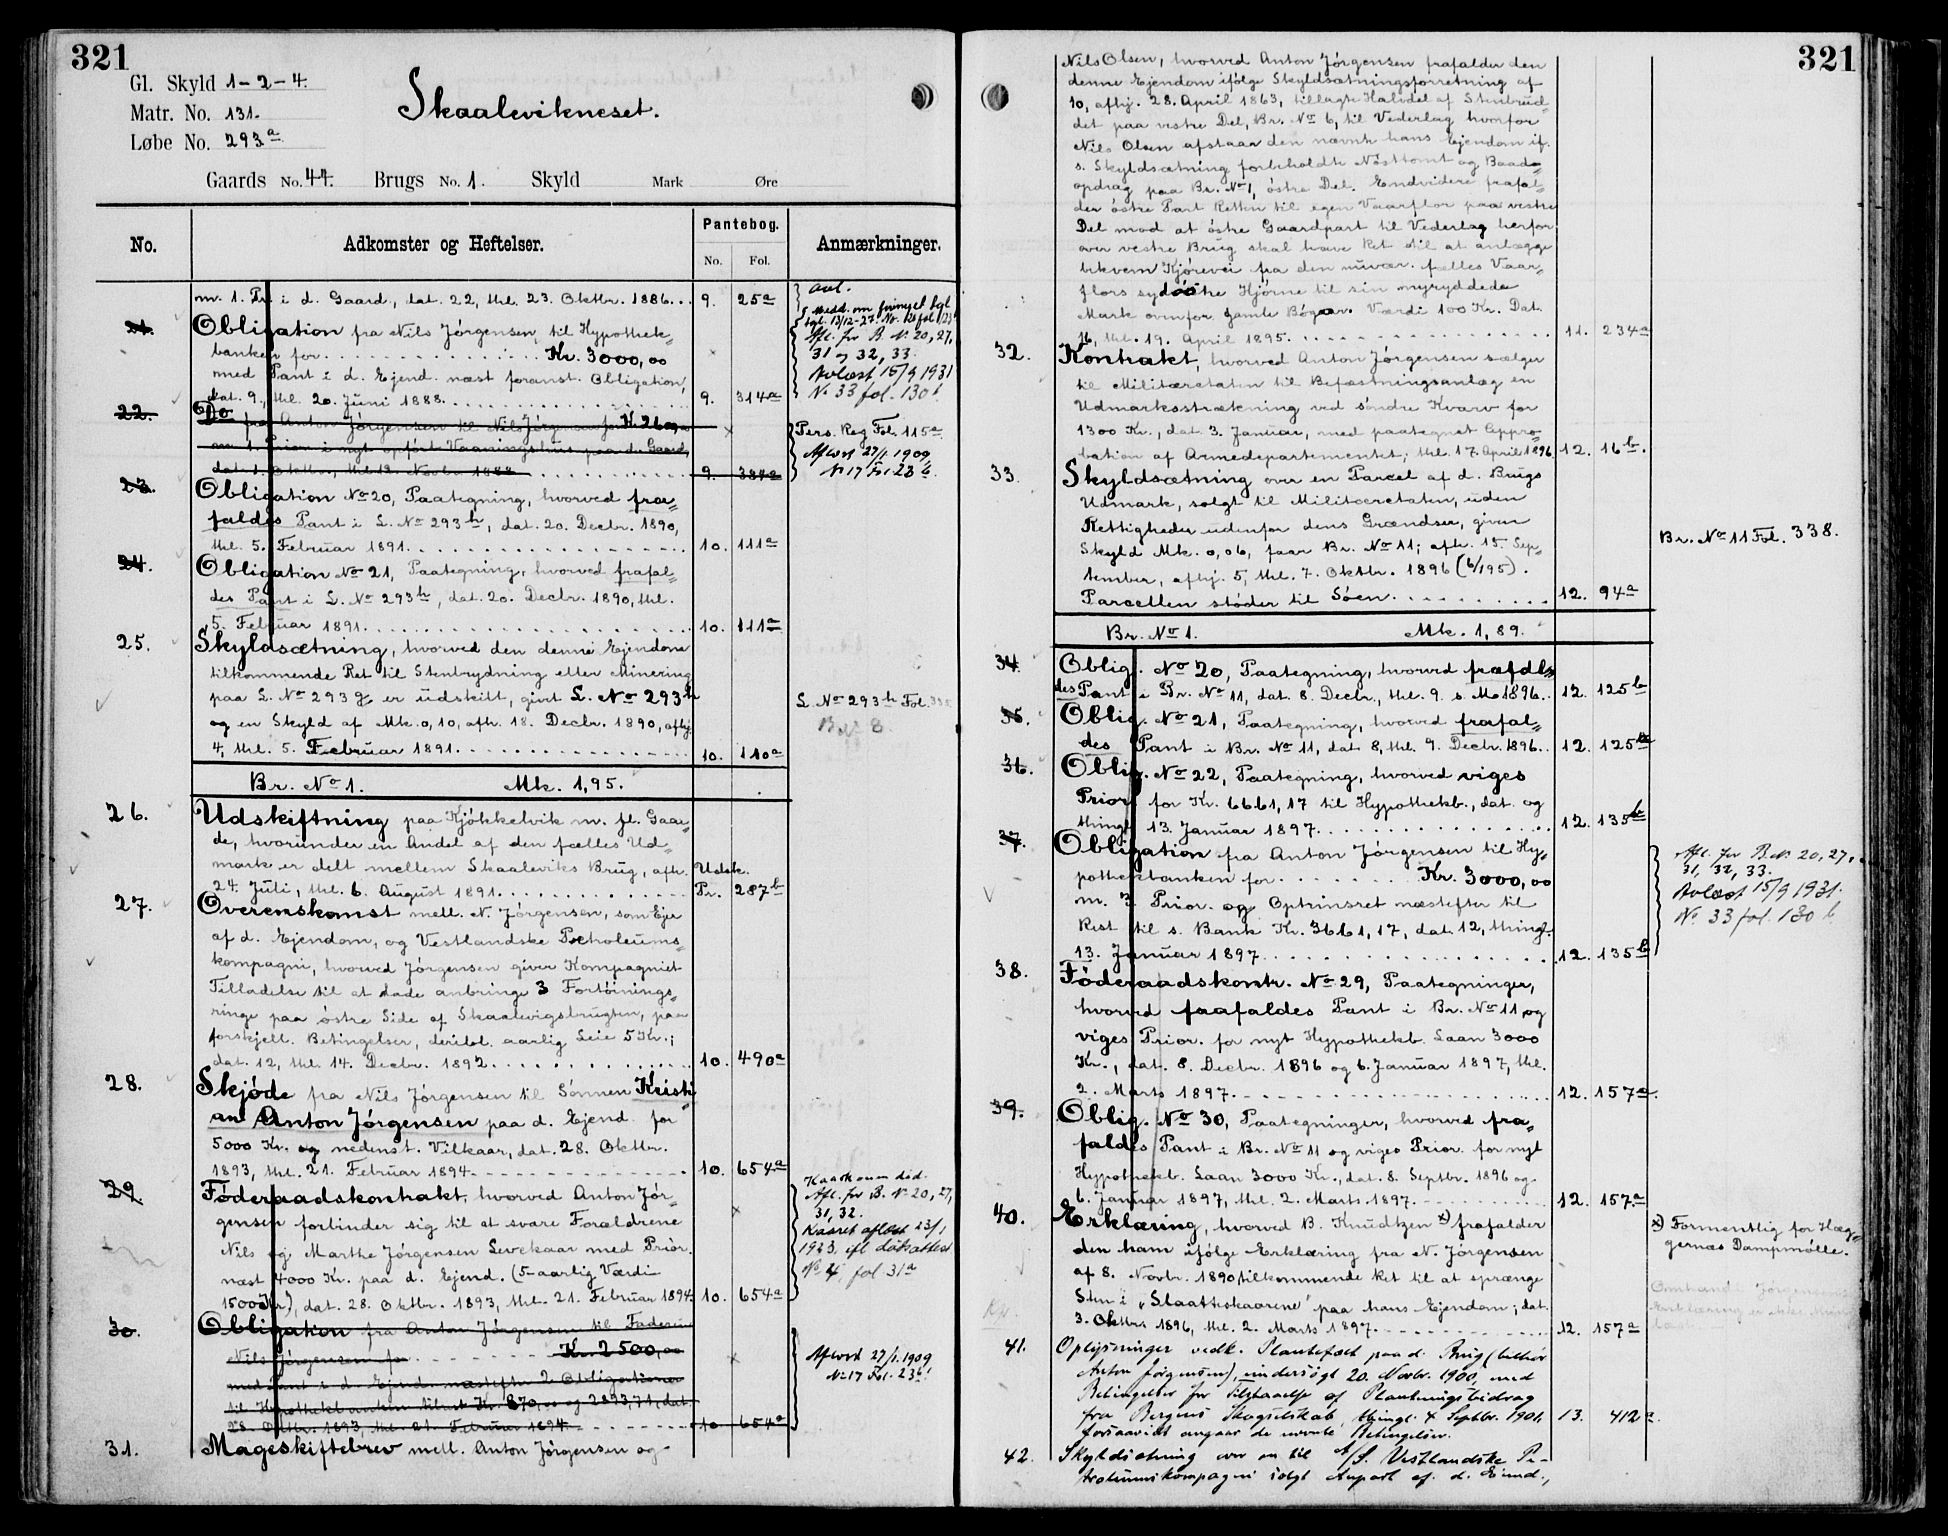 321
Gl. Skyld 1-2-4.
Matr. No. 131.
Løbe No. 293a
Skaalevikneset.
Gaards No. 44. Brugs No. 1. Skyld Mark Øre
No. Adkomster og Heftelser. Pantebog. No. Fol. Anmærkninger.
m. 1. Pr. i d. Gaard, dat. 22, thl. 23. Oktbr. 1886... 9. 25a
21. Obligation fra Nils Jörgensen, til Hypothek-
banken for ........ Kr. 3000,00
med Pant i d. Ejend. næst foranst. Obligation,
dat. 9., thl. 20. Juni 1888. ........ 9. 314a
Afl. for B. No. 20, 27,
31 og 32, 33.
Avlæst 15/9 1931
No. 33 fol. 130b
22. Do fra Anton Jörgensen til Nils Jörgensen for Kr. 2600,00
m. 1. Prior. i nyt opført Vaaningshus paa d. Gaard,
Pers. Reg. Fol. 115a
Aflvst 27/1 1909
No 17 Fol. 23b.
23. Obligation No 20, Paategning, hvorved fra-
faldes Pant i L. No 293h, dat. 20. Decbr. 1890,
thl. 5. Februar 1891. ........ 10. 111a
24. Obligation No 21, Paategning, hvorved frafal-
des Pant i L. No 293h, dat. 20. Decbr. 1890, thl.
5. Februar 1891. ........ 10. 111a
25. Skyldsætning, hvorved den denne Ejendom
tilkommende Ret til Stenbrydning eller Minering
paa L. No 293g er udskilt, givet L. No 293h
og en Skyld af Mk. 0,10, afh. 18. Decbr. 1890, afhj.
4, thl. 5. Februar 1891. ........ 10. 110a
L No 293h Fol. 335
Br. 8
Br. No 1. Mk. 1,95.
26. Udskiftning paa Kjökkelvik m. fl. Gaar-
de, hvorunder en Andel af den fælles Ud-
mark er delt mellem Skaaleviks Brug, afh. Udsk.
24. Juli, thl. 6. August 1891. ........ Pr. 287b
27. Overenskomst mell. N. Jörgensen, som Ejer
af d. Ejendom, og Vestlandske Petroleums-
kompagni, hvorved Jörgensen giver Kompagniet
Tilladelse til at lade anbringe 3 Fortöinings-
ringe paa östre Side af Skaalevigsbugten, paa
forskjell. Betingelser, deribl. aarlig Leie 5 Kr.;
dat. 12, thl. 14. Decbr. 1892. ........ 10. 490a
28. Skjöde fra Nils Jörgensen til Sönnen Kristi-
an Anton Jörgensen paa d. Ejend. for
5000 Kr. og nedenst. Vilkaar, dat. 28. Oktbr.
1893, thl. 21. Februar 1894. ........ 10. 654a
29. Föderaadskontrakt, hvorved Anton Jör-
gensen forbinder sig til at svare Forældrene
Nils og Marthe Jörgensen Levekaar med Prior.
næst 4000 Kr. paa d. Ejend. (5-aarlig Værdi
1500 Kr), dat. 28. Oktbr. 1893, thl. 21. Februar 1894. 10. 654a
Afl. for B. No 20, 27,
31, 32.
Kaaret aflæst 23/1
1923, ifl dödsattest
No 4, fol 31a
30. Obligation fra Anton Jörgensen til Faderen
Nils Jörgensen for ........ Kr. 2500,00
med Pant i d. Ejend. næstefter 2 Obligationer
til Hypothekbanken tilrest Kr. 870,00 og 2893,71, dat.
28. Oktbr. 1893, thl. 21. Februar 1894. ........ 10. 654a
Aflvst 27/1. 1909
No 17 Fol. 23b!
31. Mageskiftebrev mell. Anton Jörgensen og
321
Nils Olsen, hvorved Anton Jörgensen frafalder den
denne Ejendom ifölge Skyldsætningsforretning af
10, afhj. 28. April 1863, tillagte Halvdel af Stenbrud-
det paa vestre Del, Br. No 6, til Vederlag hvorfor
Nils Olsen afstaar den nævnte hans Ejendom if.
s. Skyldsætning forbeholdte Nösttomt og Baad-
opdrag paa Br. No 1, östre Del. Endvidere frafal-
der östre Part Retten til egen Vaarflor paa vestre
Del mod at östre Gaardpart til Vederlag herfor
over vestre Brug skal have Ret til at anlægge
bekvem Kjörevei fra den nuvær. fælles Vaar-
flors sydöstre Hjörne til sin nyryddede
Mark ovenfor gamle Bögar. Værdi 100 Kr. Dat.
16, thl. 19. April 1895. ........ 11. 234a
32. Kontrakt, hvorved Anton Jörgensen sælger
til Militæretaten til Befæstningsanlæg en
Udmarksstrækning ved söndre Kvarv for
1300 Kr., dat. 3. Januar, med paategnet Appro-
bation af Armedepartementet; thl. 17. April 1896 12. 16b.
33. Skyldsætning over en Parcel af d. Brugs
Udmark, solgt til Militæretaten, uden
Rettigheder udenfor dens Grændser, given
Skyld Mk. 0,06, faar Br. No 11; afh. 15. Sep-
tember, afhj. 5, thl. 7. Oktbr. 1896 (6/195).
Parcellen stöder til Söen. ........ 12. 94a
Br. No 11 Fol. 338.
Br. No 1. Mk. 1,89.
34. Oblig. No 20, Paategning, hvorved frafal-
des Pant i Br. No 11, dat. 8. Decbr., thl. 9. s. M. 1896.. 12. 125b
35. Oblig. No 21, Paategning, hvorved frafal-
des Pant i Br. No 11, dat. 8, thl. 9. Decbr. 1896.. 12. 125b
36. Oblig. No 22, Paategning, hvorved viges
Prior. for Kr. 6661,17 til Hypothekb., dat. og
thingl. 13. Januar 1897. ........ 12. 135b
37. Obligation fra Anton Jörgensen til Hy-
pothekbanken for ........ Kr. 3000,00
m. 3. Prior. og Optrinsret næstefter til
Rest til s. Bank Kr. 3661,17, dat. 12, thingl.
13. Januar 1897 ........ 12. 135b
Afl. for B. No. 20, 27,
31, 32, 33.
Avlæst 15/9 1931.
No. 33 fol. 130 b
38. Föderaadskontr. No 29, Paategninger,
hvorved faafaldes Pant i Br. No 11 og
viges Prior. for nyt Hypothekb. Laan 3000
Kr., dat. 8. Decbr. 1896 og 6. Januar 1897, thl.
2. Marts 1897. ........ 12. 157a.
39. Oblig. No 30, Paategninger, hvorved fra-
faldes Pant i Br. No 11 og viges Prior. for nyt
Hypothekb. Laan 3000 Kr., dat. 8. Septbr. 1896 og
6. Januar 1897, thl. 2. Marts 1897. ........ 12. 157a
40. Erklæring, hvorved B. Knudtzen x) frafalder
den ham ifölge Erklæring fra N. Jörgensen
af 8. Novbr. 1890 tilkommende Ret til at sprænge
Sten i "Slaatteskaarene" paa hans Ejendom; dat.
3. Oktbr. 1896, thl. 2. Marts 1897. ........ 12. 157a
x) Formentlig for Hæg-
gernæs Dampmölle.
41. Oplysninger vedk. Plantefelt paa d. Brug (tilhör
Anton Jörgensen), undersögt 20. Novbr. 1900, med
Betingelser for Tilstaaelse af Plantningsbidrag
fra Bergens Skogselskab, thingl. 4. Septbr. 1901. 13. 412a.
forsaavidt angaar de nævnte Betingelser.
42. Skyldsætning over en til A/S. Vestlandske Pe-
troleumskompagni solgt Anpart af d. Eiend.,